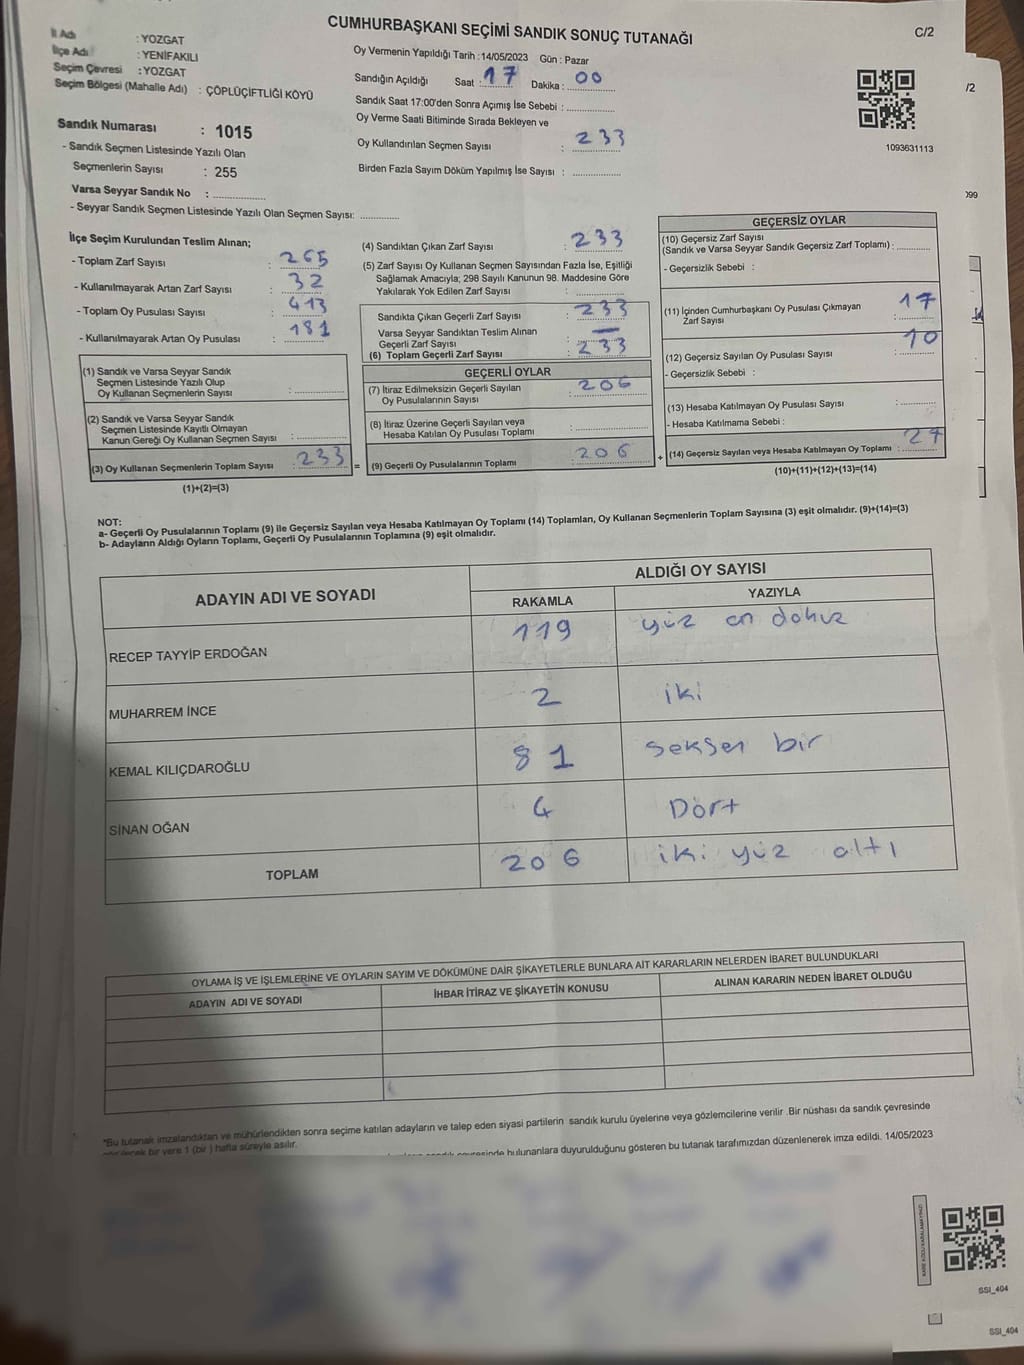 CUMHURBAŞKANI SEÇİMİ SANDIK SONUÇ TUTANAĞI
C/2
İl Adı : YOZGAT
İlçe Adı : YENİFAKILI
Seçim Çevresi : YOZGAT
Seçim Bölgesi (Mahalle Adı) : ÇÖPLÜÇİFTLİĞİ KÖYÜ
Sandık Numarası : 1015
- Sandık Seçmen Listesinde Yazılı Olan
Seçmenlerin Sayısı : 255
Varsa Seyyar Sandık No :
- Seyyar Sandık Seçmen Listesinde Yazılı Olan Seçmen Sayısı:
Oy Vermenin Yapıldığı Tarih : 14/05/2023 Gün : Pazar
Sandığın Açıldığı Saat : 17 Dakika : 00
Sandık Saat 17:00'den Sonra Açımış İse Sebebi :
Oy Verme Saati Bitiminde Sırada Bekleyen ve
Oy Kullandırılan Seçmen Sayısı : 233
Birden Fazla Sayım Döküm Yapılmış İse Sayısı :
1093631113
/2
099
İlçe Seçim Kurulundan Teslim Alınan;
- Toplam Zarf Sayısı : 265
- Kullanılmayarak Artan Zarf Sayısı : 32
- Toplam Oy Pusulası Sayısı : 413
- Kullanılmayarak Artan Oy Pusulası : 181
(1) Sandık ve Varsa Seyyar Sandık
Seçmen Listesinde Yazılı Olup
Oy Kullanan Seçmenlerin Sayısı :
(2) Sandık ve Varsa Seyyar Sandık
Seçmen Listesinde Kayıtlı Olmayan
Kanun Gereği Oy Kullanan Seçmen Sayısı :
(3) Oy Kullanan Seçmenlerin Toplam Sayısı : 233 =
(1)+(2)=(3)
(4) Sandıktan Çıkan Zarf Sayısı : 233
(5) Zarf Sayısı Oy Kullanan Seçmen Sayısından Fazla İse, Eşitliği
Sağlamak Amacıyla; 298 Sayılı Kanunun 98. Maddesine Göre
Yakılarak Yok Edilen Zarf Sayısı :
Sandıkta Çıkan Geçerli Zarf Sayısı : 233
Varsa Seyyar Sandıktan Teslim Alınan
Geçerli Zarf Sayısı : —
(6) Toplam Geçerli Zarf Sayısı : 233
GEÇERLİ OYLAR
(7) İtiraz Edilmeksizin Geçerli Sayılan
Oy Pusulalarının Sayısı : 206
(8) İtiraz Üzerine Geçerli Sayılan veya
Hesaba Katılan Oy Pusulası Toplamı :
(9) Geçerli Oy Pusulalarının Toplamı : 206 +
GEÇERSİZ OYLAR
(10) Geçersiz Zarf Sayısı
(Sandık ve Varsa Seyyar Sandık Geçersiz Zarf Toplamı) :
- Geçersizlik Sebebi :
(11) İçinden Cumhurbaşkanı Oy Pusulası Çıkmayan
Zarf Sayısı : 17
(12) Geçersiz Sayılan Oy Pusulası Sayısı : 10
- Geçersizlik Sebebi :
(13) Hesaba Katılmayan Oy Pusulası Sayısı :
- Hesaba Katılmama Sebebi :
(14) Geçersiz Sayılan veya Hesaba Katılmayan Oy Toplamı : 27
(10)+(11)+(12)+(13)=(14)
NOT:
a- Geçerli Oy Pusulalarının Toplamı (9) ile Geçersiz Sayılan veya Hesaba Katılmayan Oy Toplamı (14) Toplamları, Oy Kullanan Seçmenlerin Toplam Sayısına (3) eşit olmalıdır. (9)+(14)=(3)
b- Adayların Aldığı Oyların Toplamı, Geçerli Oy Pusulalarının Toplamına (9) eşit olmalıdır.
ADAYIN ADI VE SOYADI
ALDIĞI OY SAYISI
RAKAMLA YAZIYLA
RECEP TAYYİP ERDOĞAN 119 yüz on dokuz
MUHARREM İNCE 2 iki
KEMAL KILIÇDAROĞLU 81 seksen bir
SİNAN OĞAN 4 Dört
TOPLAM 206 iki yüz altı
OYLAMA İŞ VE İŞLEMLERİNE VE OYLARIN SAYIM VE DÖKÜMÜNE DAİR ŞİKAYETLERLE BUNLARA AİT KARARLARIN NELERDEN İBARET BULUNDUKLARI
ADAYIN ADI VE SOYADI İHBAR İTİRAZ VE ŞİKAYETİN KONUSU ALINAN KARARIN NEDEN İBARET OLDUĞU
*Bu tutanak imzalandıktan ve mühürlendikten sonra seçime katılan adayların ve talep eden siyasi partilerin sandık kurulu üyelerine veya gözlemcilerine verilir .Bir nüshası da sandık çevresinde
bir yere 1 (bir ) hafta süreyle asılır.
bulunanlara duyurulduğunu gösteren bu tutanak tarafımızdan düzenlenerek imza edildi. 14/05/2023
SSI_404
SSI_404